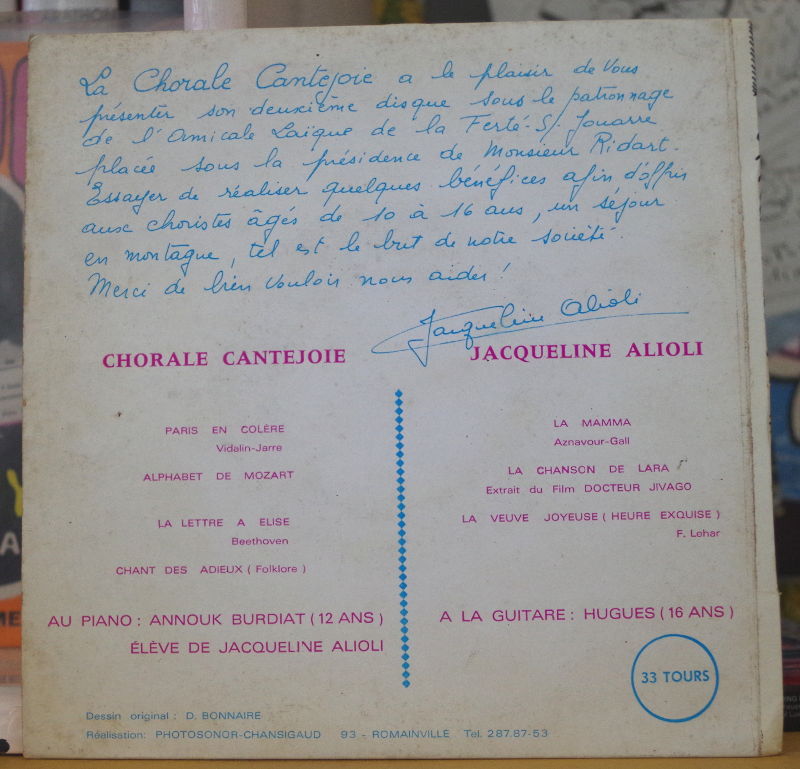 La Chorale Cantejoie a le plaisir de Vous
présenter son deuxième disque sous le patronnage
de l'Amicale Laïque de la Ferté-S/-Jouarre
placée sous la présidence de Monsieur Ridart.
Essayer de réaliser quelques bénéfices afin d'offrir
aux choristes âgés de 10 à 16 ans, un séjour
en montagne, tel est le but de notre société.
Merci de bien vouloir nous aider!
Jacqueline Alioli
CHORALE CANTEJOIE
PARIS EN COLÈRE
Vidalin-Jarre
ALPHABET DE MOZART
LA LETTRE A ELISE
Beethoven
CHANT DES ADIEUX ( Folklore )
AU PIANO : ANNOUK BURDIAT ( 12 ANS )
ÉLÈVE DE JACQUELINE ALIOLI
JACQUELINE ALIOLI
LA MAMMA
Aznavour-Gall
LA CHANSON DE LARA
Extrait du Film DOCTEUR JIVAGO
LA VEUVE JOYEUSE ( HEURE EXQUISE )
F. Lehar
A LA GUITARE : HUGUES ( 16 ANS )
33 TOURS
Dessin original : D. BONNAIRE
Réalisation: PHOTOSONOR-CHANSIGAUD 93 - ROMAINVILLE Tel. 287.87-53